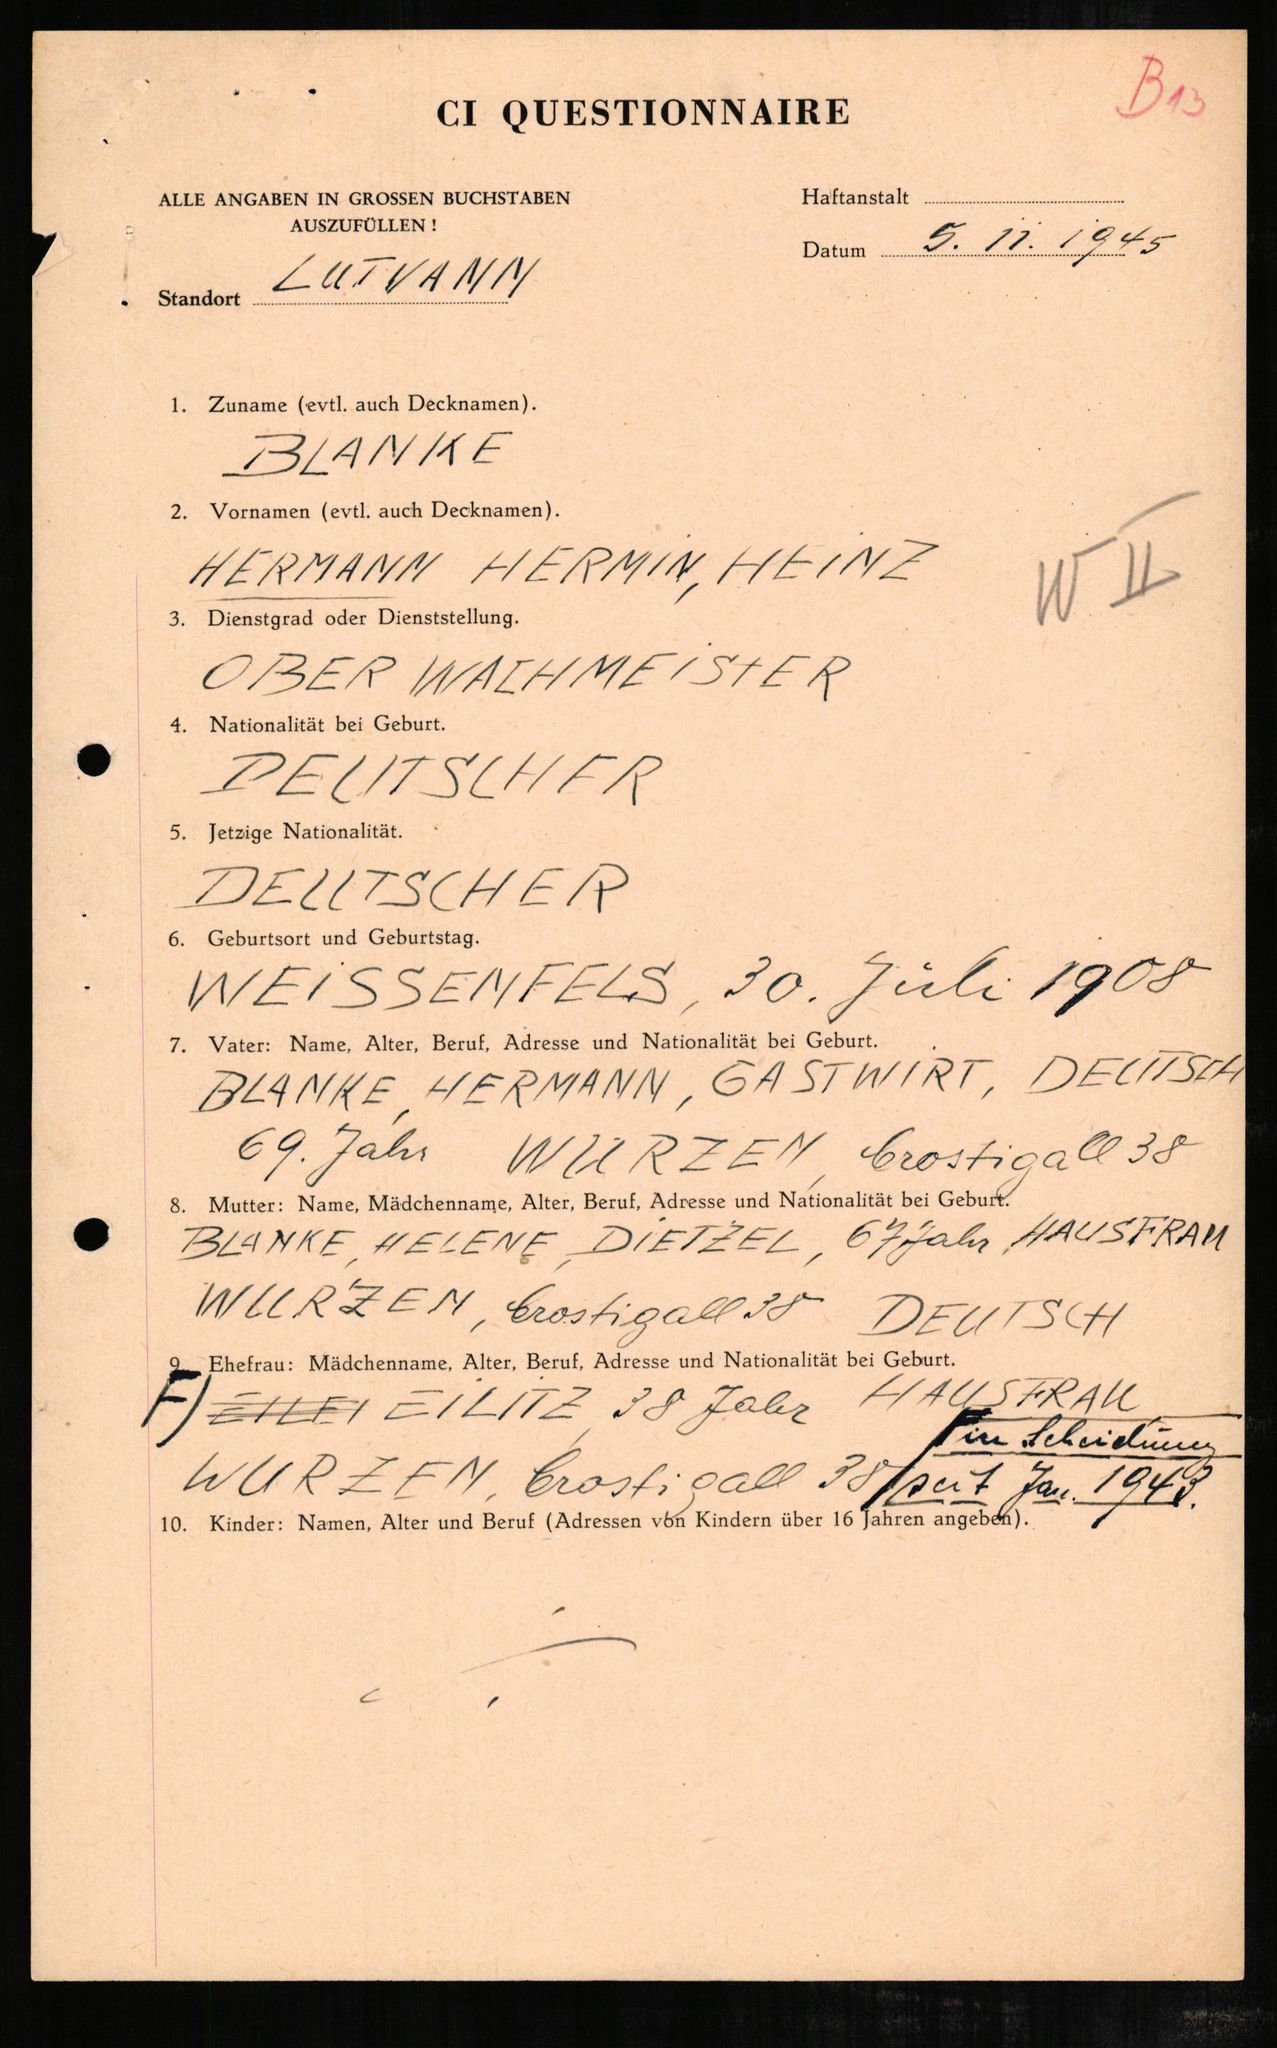 B 13
CI QUESTIONNAIRE
ALLE ANGABEN IN GROSSEN BUCHSTABEN
AUSZUFÜLLEN!
Haftanstalt
Datum 5. 11. 1945
Standort LUTVANN
1. Zuname (evtl. auch Decknamen).
BLANKE
2. Vornamen (evtl. auch Decknamen).
HERMANN HERMIN, HEINZ
W II
3. Dienstgrad oder Dienststellung.
OBER WACHMEISTER
4. Nationalität bei Geburt.
DEUTSCHER
5. Jetzige Nationalität.
DEUTSCHER
6. Geburtsort und Geburtstag.
WEISSENFELS, 30. Juli 1908
7. Vater: Name, Alter, Beruf, Adresse und Nationalität bei Geburt.
BLANKE, HERMANN, GASTWIRT, DEUTSCH
69. Jahr WURZEN, Crostigall 38
8. Mutter: Name, Mädchenname, Alter, Beruf, Adresse und Nationalität bei Geburt.
BLANKE, HELENE, DIETZEL, 67 Jahr, HAUSFRAU
WURZEN, Crostigall 38 DEUTSCH
9. Ehefrau: Mädchenname, Alter, Beruf, Adresse und Nationalität bei Geburt.
F) EILITZ, 38 Jahr HAUSFRAU
in Scheidung
WURZEN, Crostigall 38 seit Jan. 1943.
10. Kinder: Namen, Alter und Beruf (Adressen von Kindern über 16 Jahren angeben).